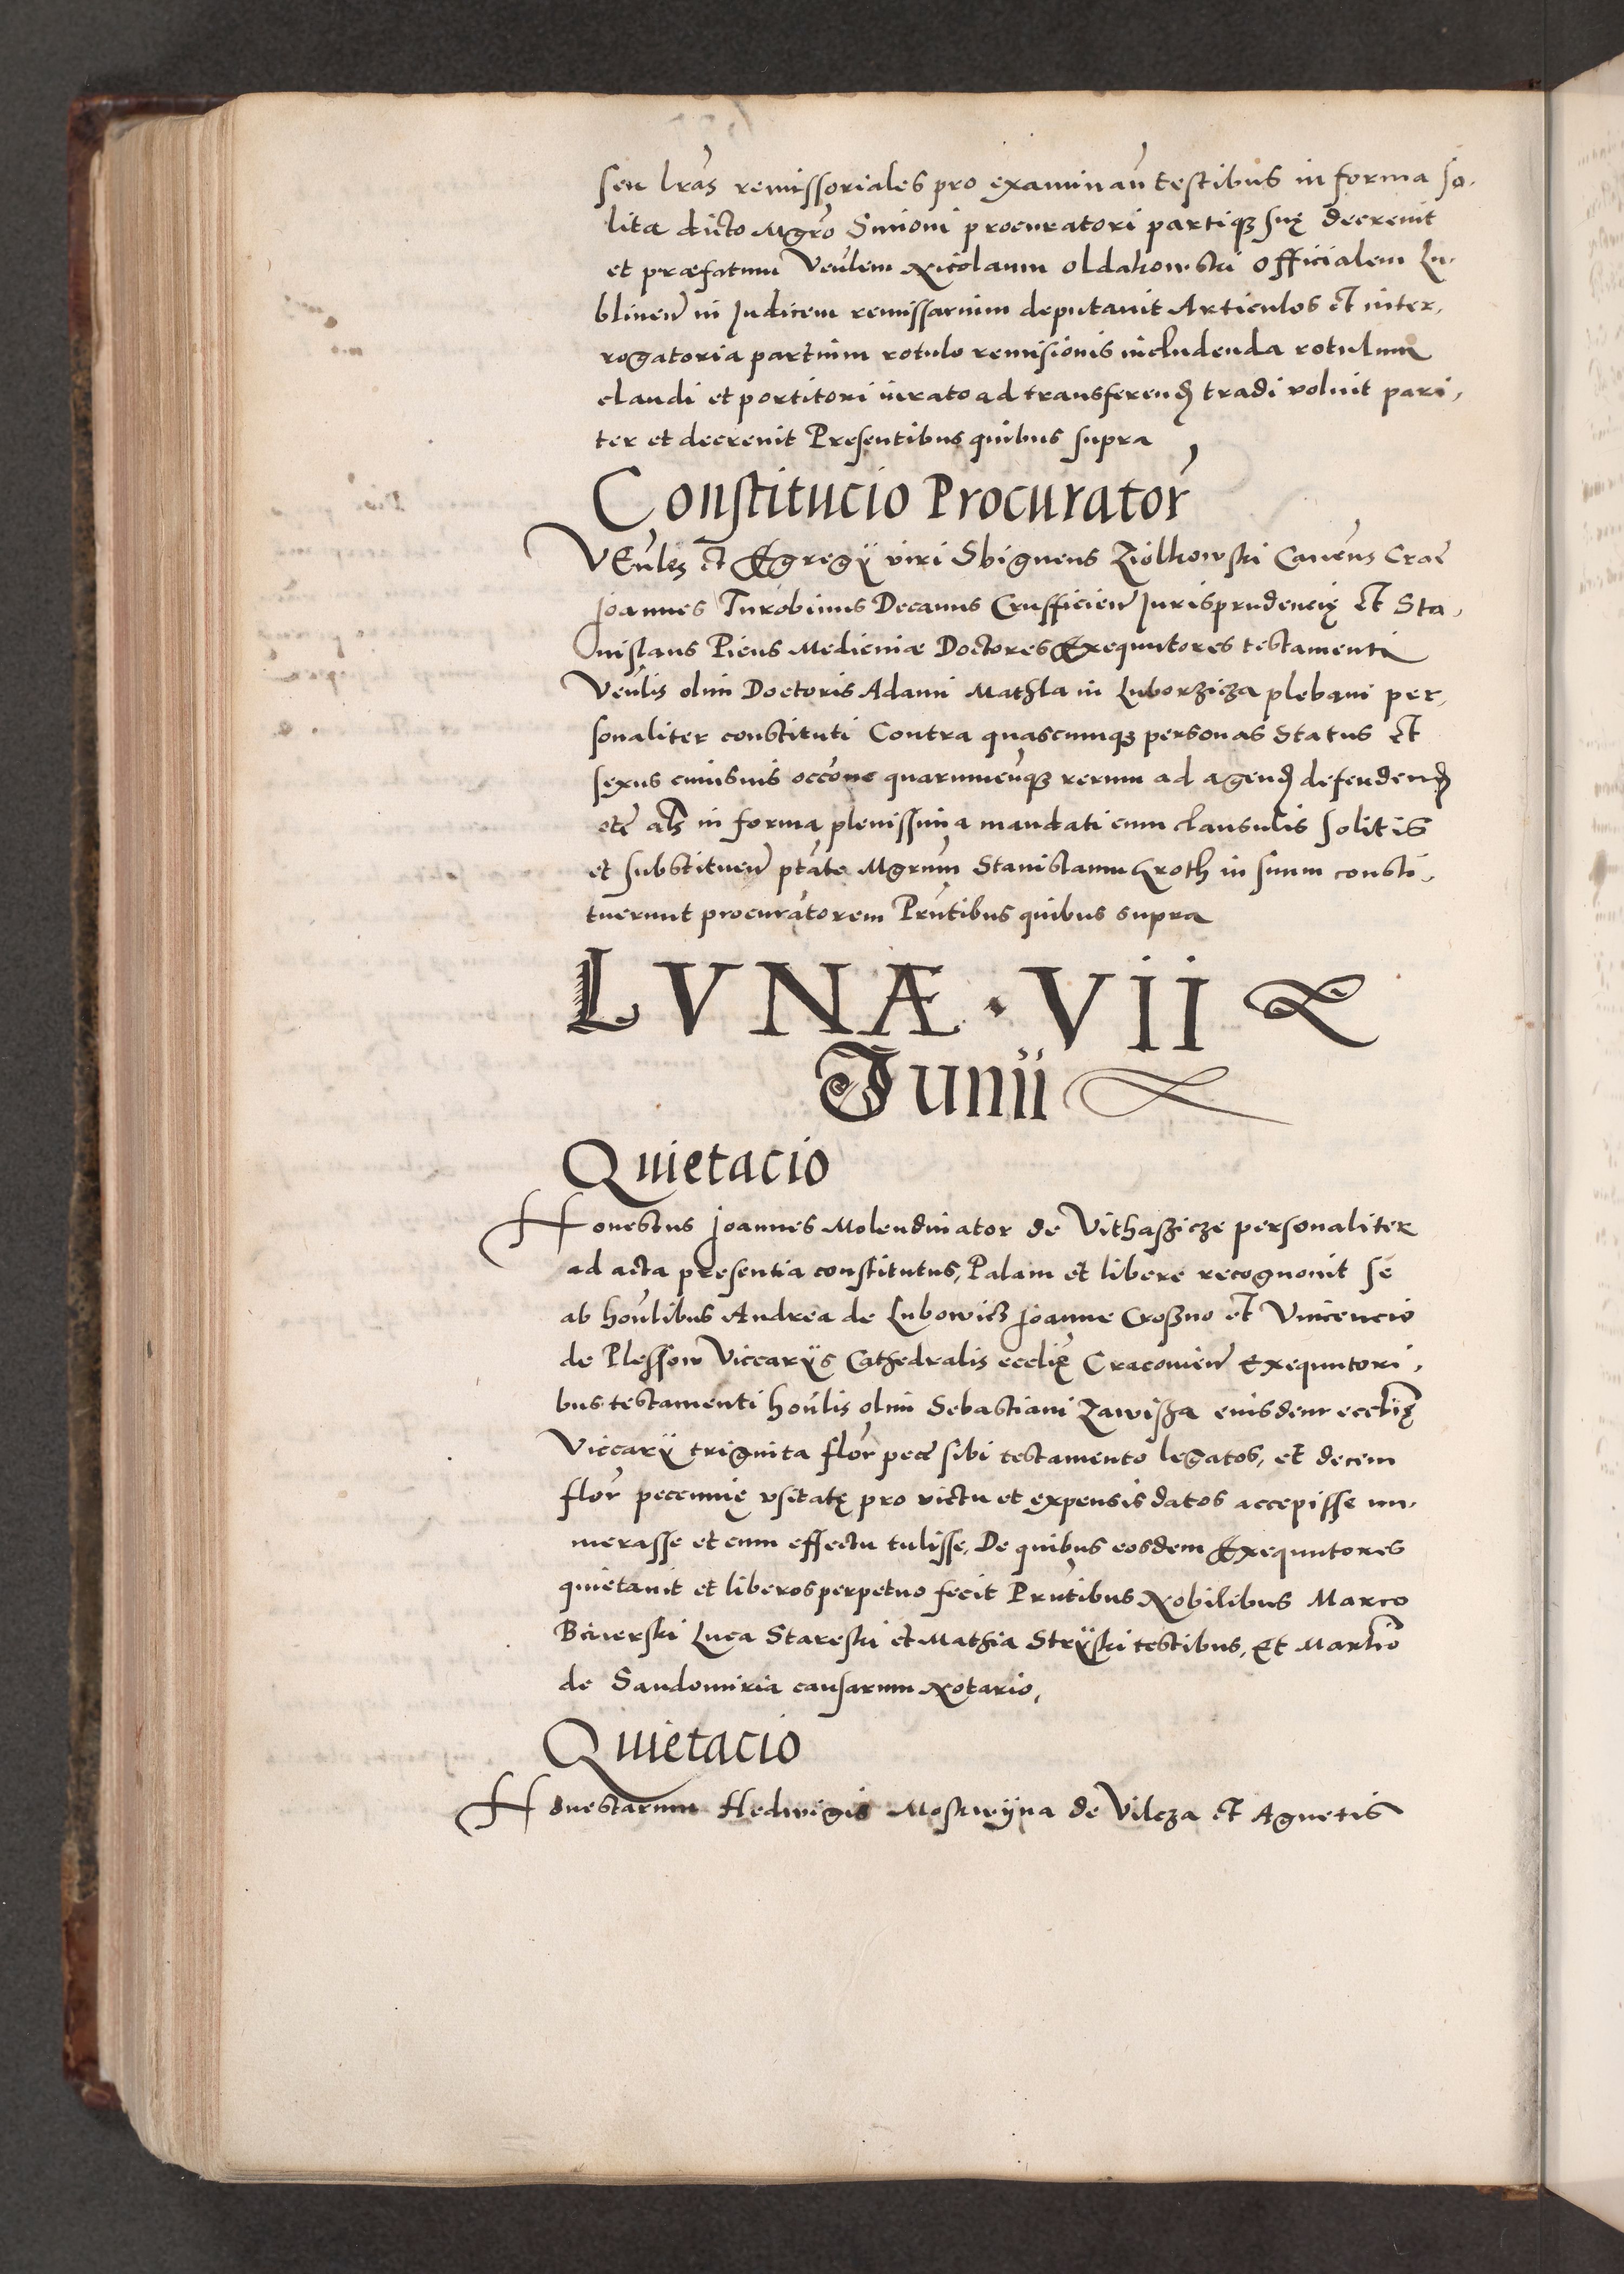 seu lras remissoriales pro examinan testibus in forma so-
lita dicto Mgro Simoni procuratori partiq3 suę decrevit
et præfatum Venlem Nicolaum Oldakowski Officialem Lu-
blinen in Judicem remissarium deputavit Articulos et inter-
rogatoria partium rotulo remisionis includenda rotulum
claudi et portitori iurato ad transferend tradi voluit pari-
ter et decrevit Presentibus quibus supra
Constitucio Procurator
VEnles et Egregij viri Sbigneus Ziolkowski Cancus Crac
Joannes Turobinus Decanus Crufficien Jurisprudencię et Sta-
nislaus Picus Medicinæ Doctores Exequutores testamenti
Venlis olim Doctoris Adami Mathla in Luborzicza plebani per-
sonaliter constituti Contra quascumq3 personas Status et
sexus cuiusuis occone quarumcunq3 rerum ad agend defendend
etc als in forma plenissima mandati cum clausulis solitis
et substituen ptate Mgrum Stanislaum Kroth in suum consti-
tuerunt procuratorem Pntibus quibus supra
LVNÆ · VII
Junii
Quietacio
Honestus Joannes Molendinator de Vithaszicze personaliter
ad acta presentia constitutus, Palam et libere recognovit se
ab honlibus Andrea de Lubowicz Joanne Croszno et Vincencio
de Plessow Viccarijs Cathedralis ecclię Cracovien Exequutori-
bus testamenti honlis olim Sebastiani Zawisza eiusdem ecclię
Viccarij triginta flor pecc sibi testamento legatos, et decem
flor peccunię vsitatę pro victu et expensis datos accepisse nu-
merasse et cum effectu tulisse, De quibus eosdem Exequutores
quietavit et liberos perpetuo fecit Pntibus Nobilibus Marco
Bivierski Luca Stareski et Mathia Strijski testibus, Et Martino
de Sandomiria causarum Notario,
Quietacio
Honestarum Hedwigis Moskwijna de Vilcza et Agnetis